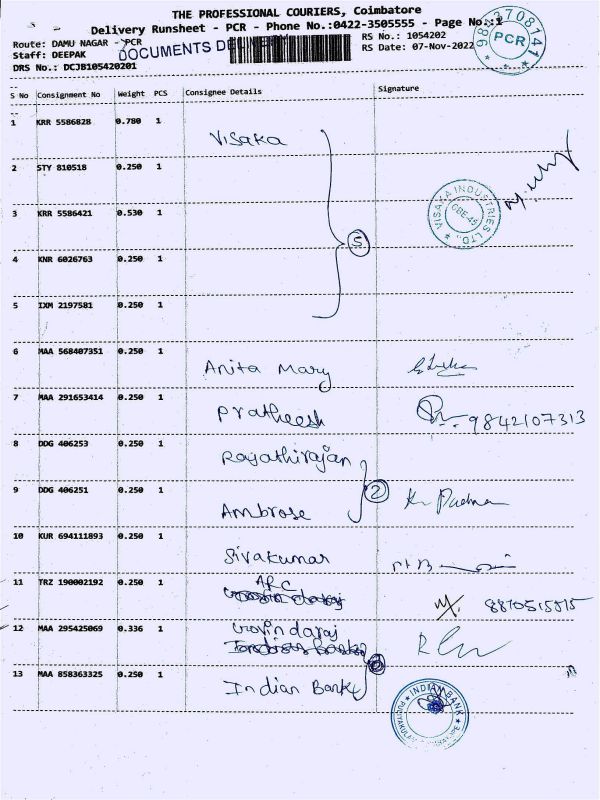 THE PROFESSIONAL COURIERS, Coimbatore
Delivery Runsheet - PCR - Phone No.:0422-3505555 - Page No.:1
Route: DAMU NAGAR - PCR
DOCUMENTS
RS No.: 1054202
Staff: DEEPAK
RS Date: 07-Nov-2022
DRS No.: DCJB105420201
9843708141
PCR
S No Consignment No Weight PCS Consignee Details Signature
1 KRR 5586828 0.780 1 Visaka
2 STY 810518 0.250 1
3 KRR 5586421 0.530 1
VISAKA INDUSTRIES LTD.
CBE-45
5
4 KNR 6026763 0.250 1
5 IXM 2197581 0.250 1
6 MAA 568407351 0.250 1 Anita Mary
7 MAA 291653414 0.250 1 Pratheesh 9842107313
8 DDG 406253 0.250 1 Rajathirajan
2
9 DDG 406251 0.250 1 Ambrose
10 KUR 694111893 0.250 1 Sivakumar
11 TRZ 190002192 0.250 1 ARC 8870515815
12 MAA 295425069 0.336 1 Govindaraj
13 MAA 858363325 0.250 1 Indian Bank
INDIAN BANK